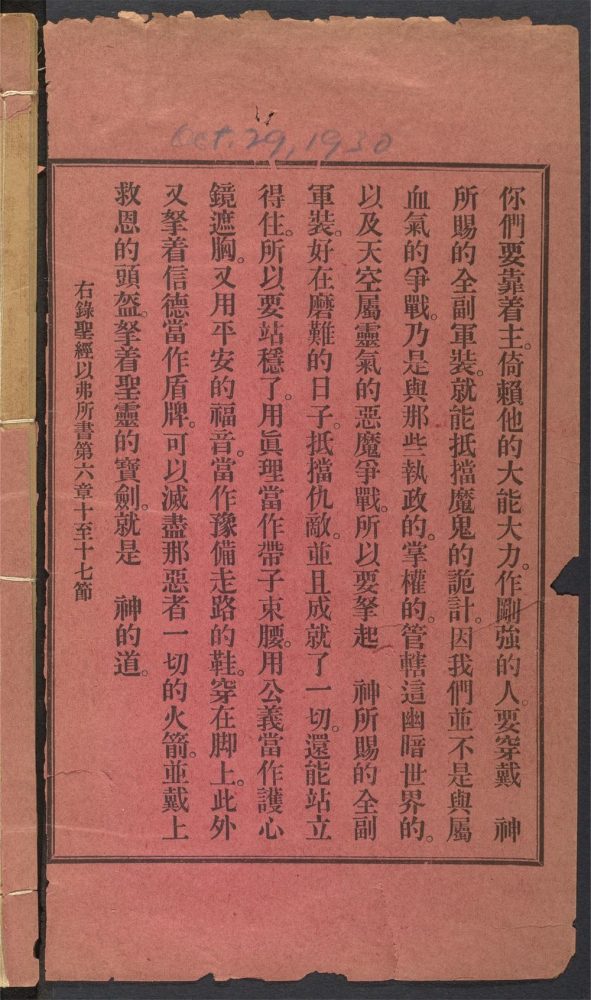 Oct. 29, 1930
你們要靠着主。倚賴他的大能大力。作剛強的人。要穿戴　神
所賜的全副軍裝。就能抵擋魔鬼的詭計。因我們並不是與屬
血氣的爭戰。乃是與那些執政的。掌權的。管轄這幽暗世界的。
以及天空屬靈氣的惡魔爭戰。所以要拏起　神所賜的全副
軍裝。好在磨難的日子。抵擋仇敵。並且成就了一切。還能站立
得住。所以要站穩了。用眞理當作帶子束腰。用公義當作護心
鏡遮胸。又用平安的福音。當作豫備走路的鞋。穿在脚上。此外
又拏着信德當作盾牌。可以滅盡那惡者一切的火箭。並戴上
救恩的頭盔。拏着聖靈的寶劍。就是　神的道。
右錄聖經以弗所書第六章十至十七節